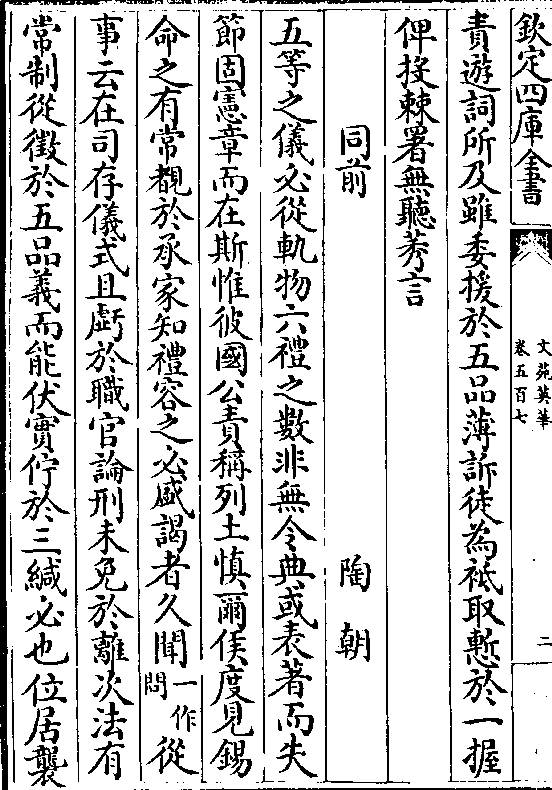 欽定四庫全書
文苑英華
卷五百七
二
責遊詞所及雖委援於五品薄訴徒為祗取慙於一握
俾投棘署無聽莠言
同前 陶朝
五等之儀必從軌物六禮之數非無令典或表著而失
節固憲章而在斯惟彼國公責稱列土慎爾侯度見錫
命之有常覩於承家知禮容之必盛謁者久聞一作問從
事云在司存儀式且虧於職官論刑未免於離次法有
常制從徵於五品義而能伏實佇於三緘必也位居襲